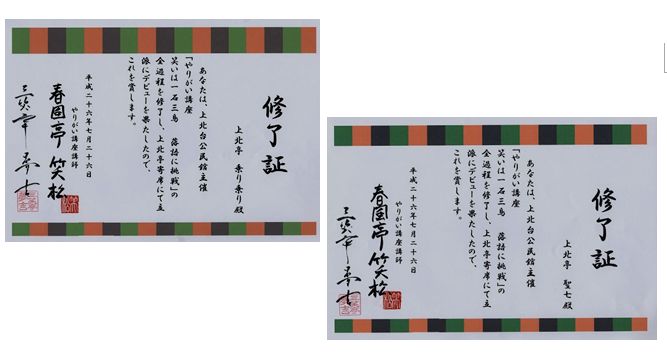 修了証
上北亭 乗り乗り殿
あなたは、上北台公民館主催
「やりがい講座
笑いは一石三鳥 落語に挑戦」の
全過程を修了し、上北亭寄席にて立
派にデビューを果たしたので、
これを賞します。
平成二十六年七月二十六日
やりがい講座講師
春園亭 笑松
修了証
上北亭 聖七殿
あなたは、上北台公民館主催
「やりがい講座
笑いは一石三鳥 落語に挑戦」の
全過程を修了し、上北亭寄席にて立
派にデビューを果たしたので、
これを賞します。
平成二十六年七月二十六日
やりがい講座講師
春園亭 笑松